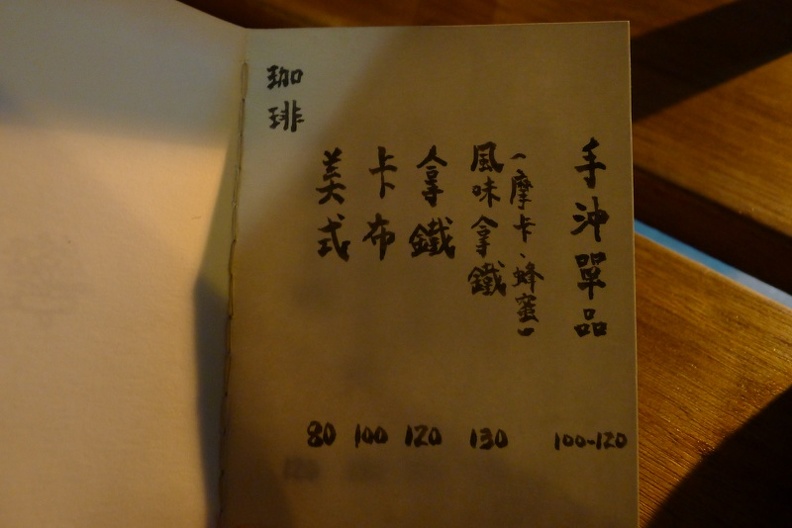 珈琲
美式 80
卡布 100
拿鐵 120
風味拿鐵 130
(摩卡、蜂蜜)
手沖單品 100-120